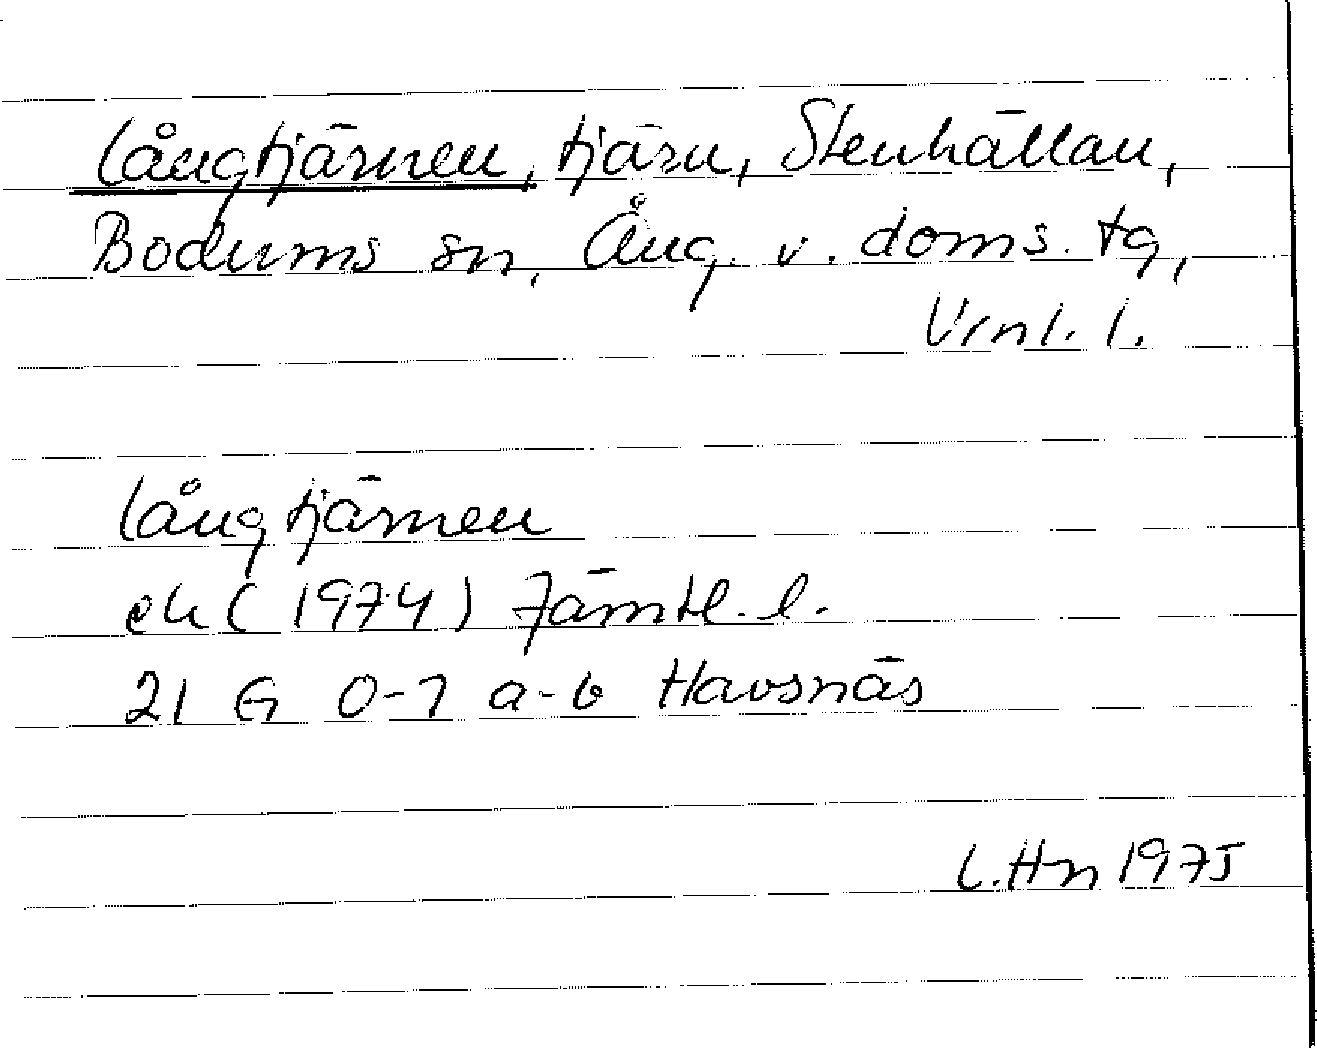 Långtjärnen, tjärn, Stenhällan,
Bodums sn, Ång. v. doms. tg,
Vrnl. l.
Långtjärnen
ek (1974) Jämtl. l.
21 G 0-1 a-b Havsnäs
L. H-n 1975